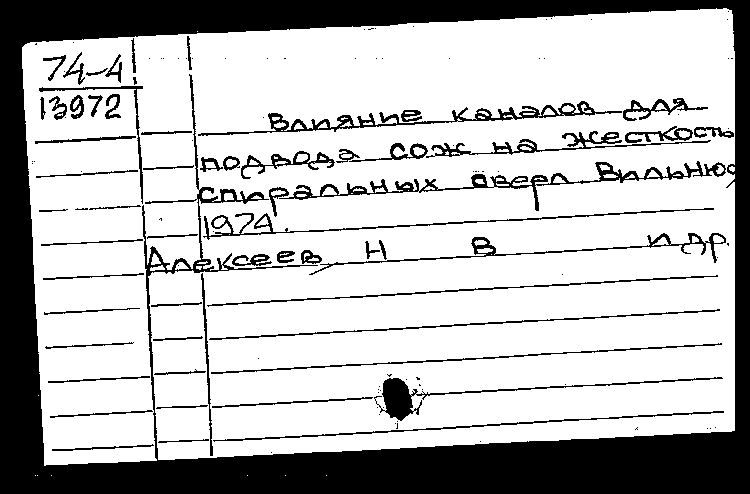 74-4
13972
Влияние каналов для
подвода сож на жесткость
спиральных сверл Вильнюс,
1974.
Алексеев, Н В и др.